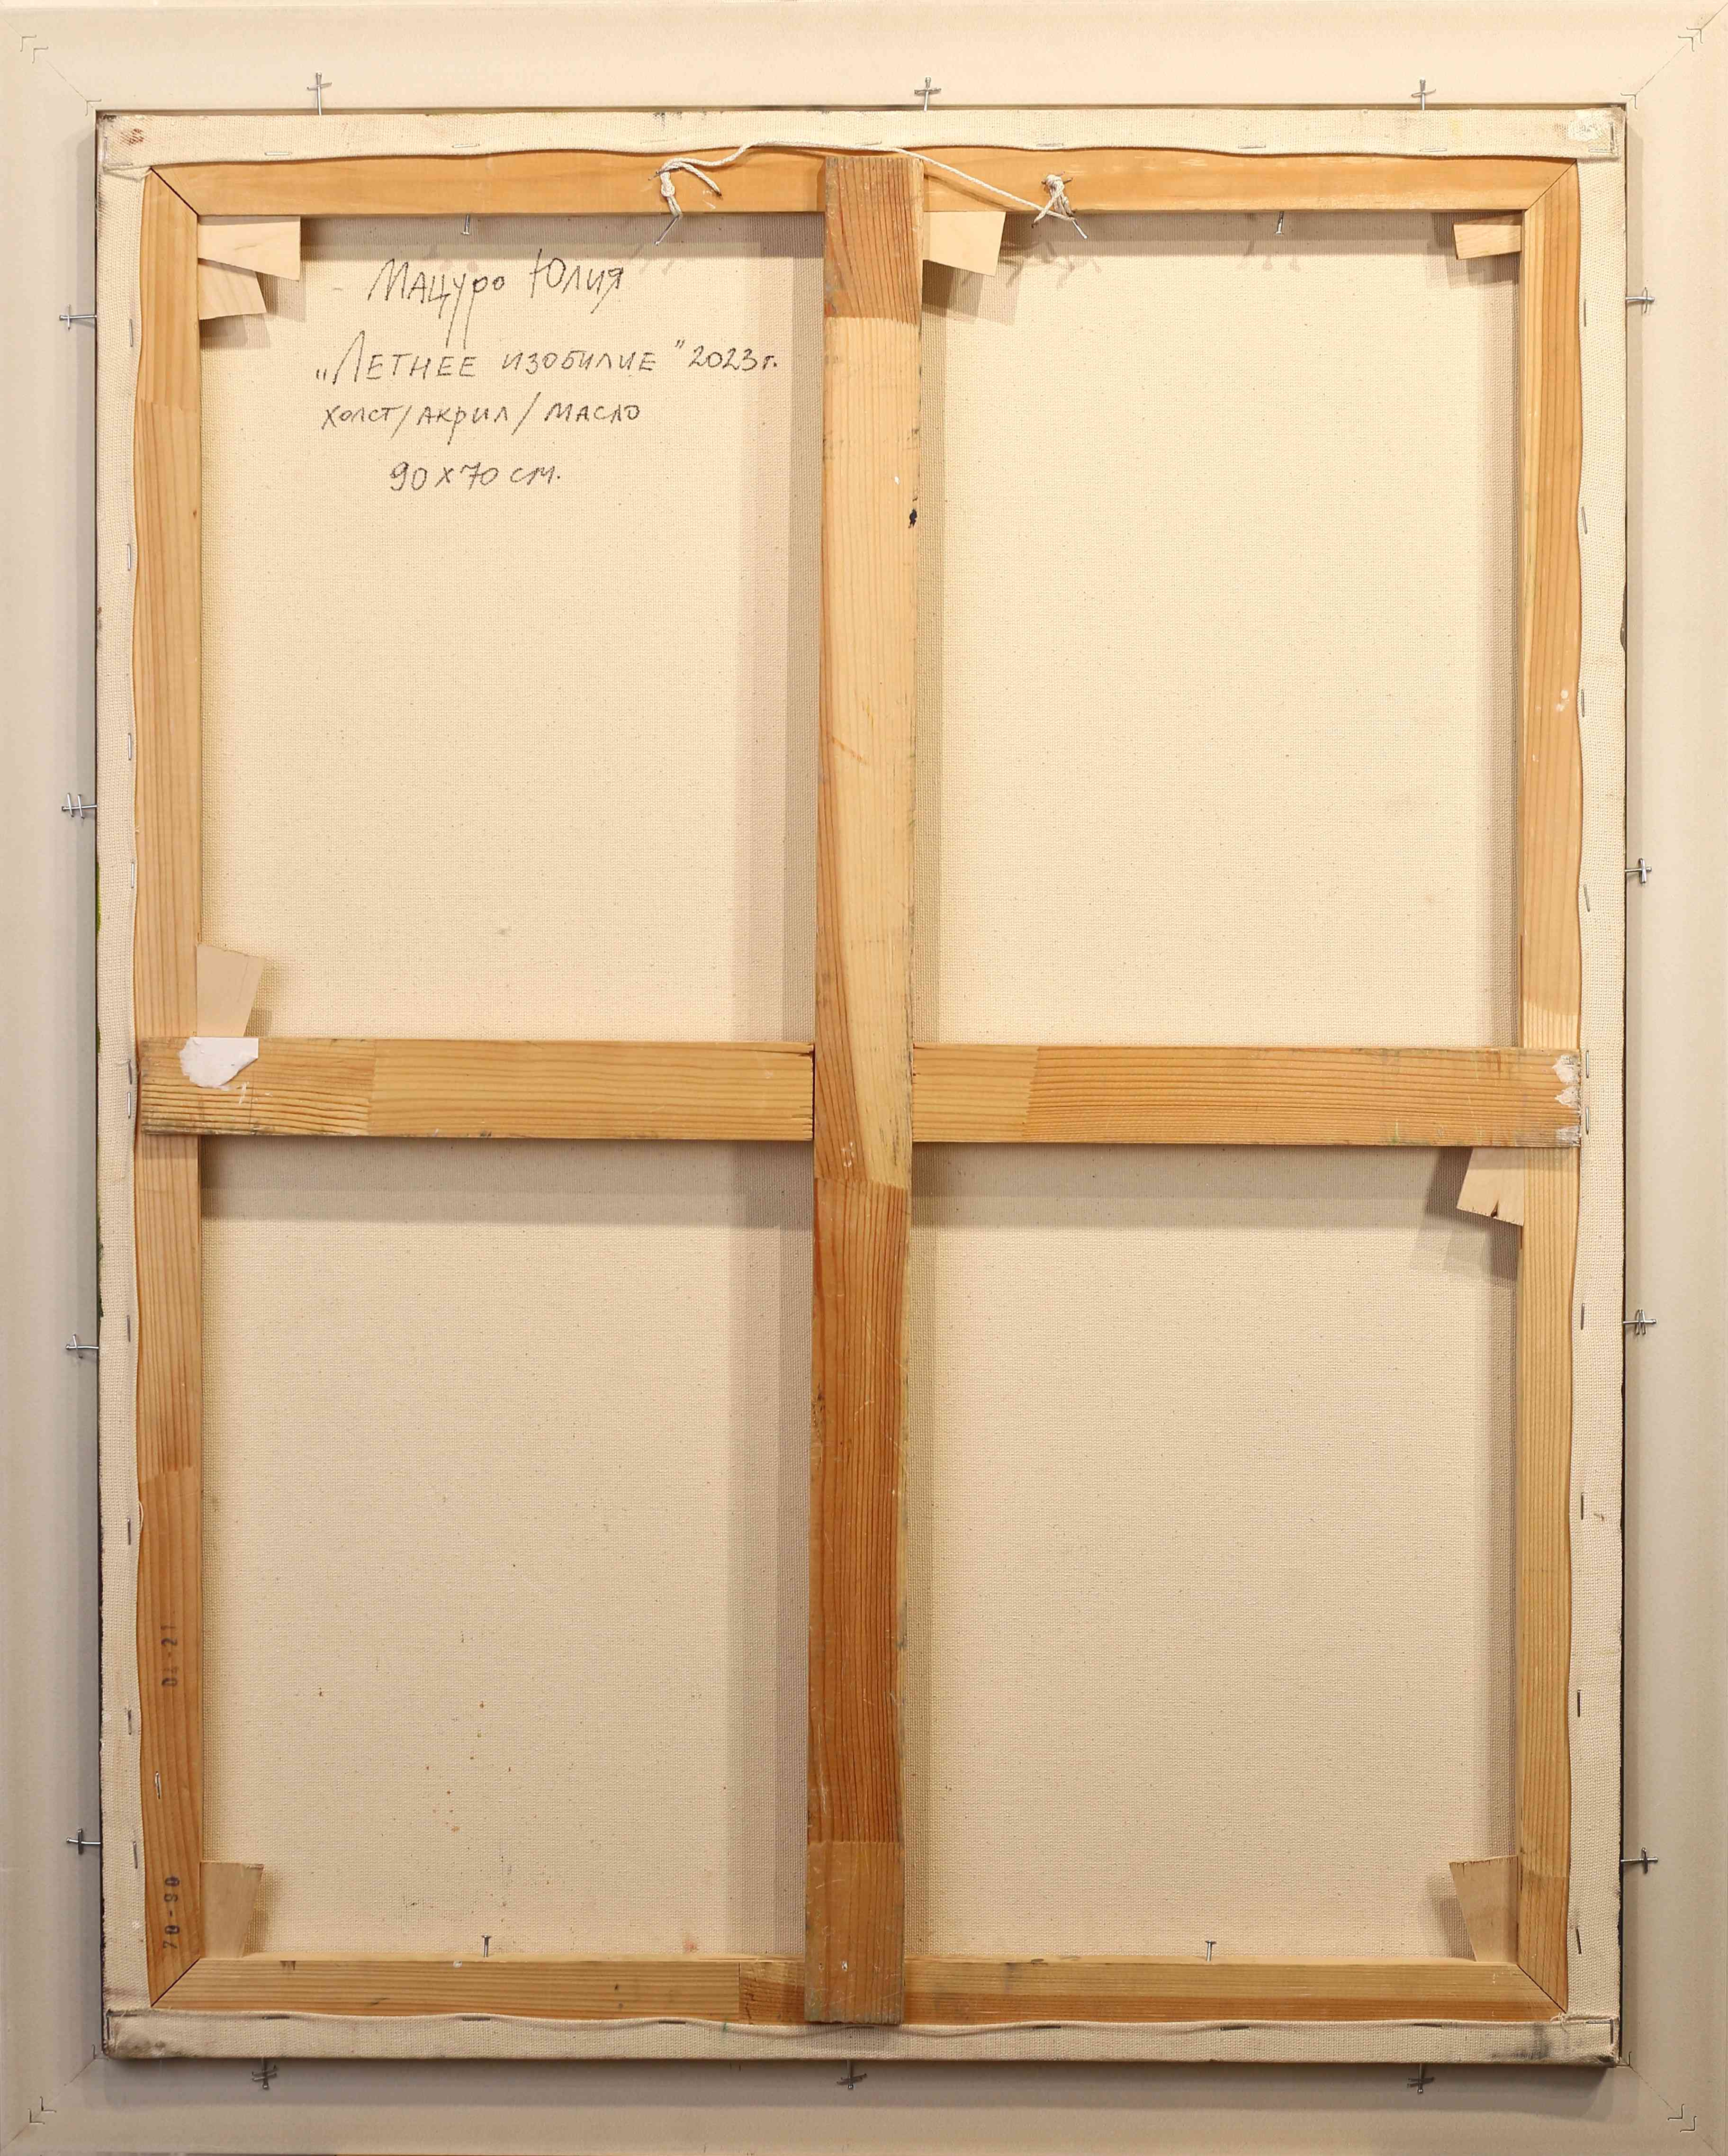 Мацуро Юлия
„Летнее изобилие" 2023г.
холст/акрил/масло
90х70 см.
70-90